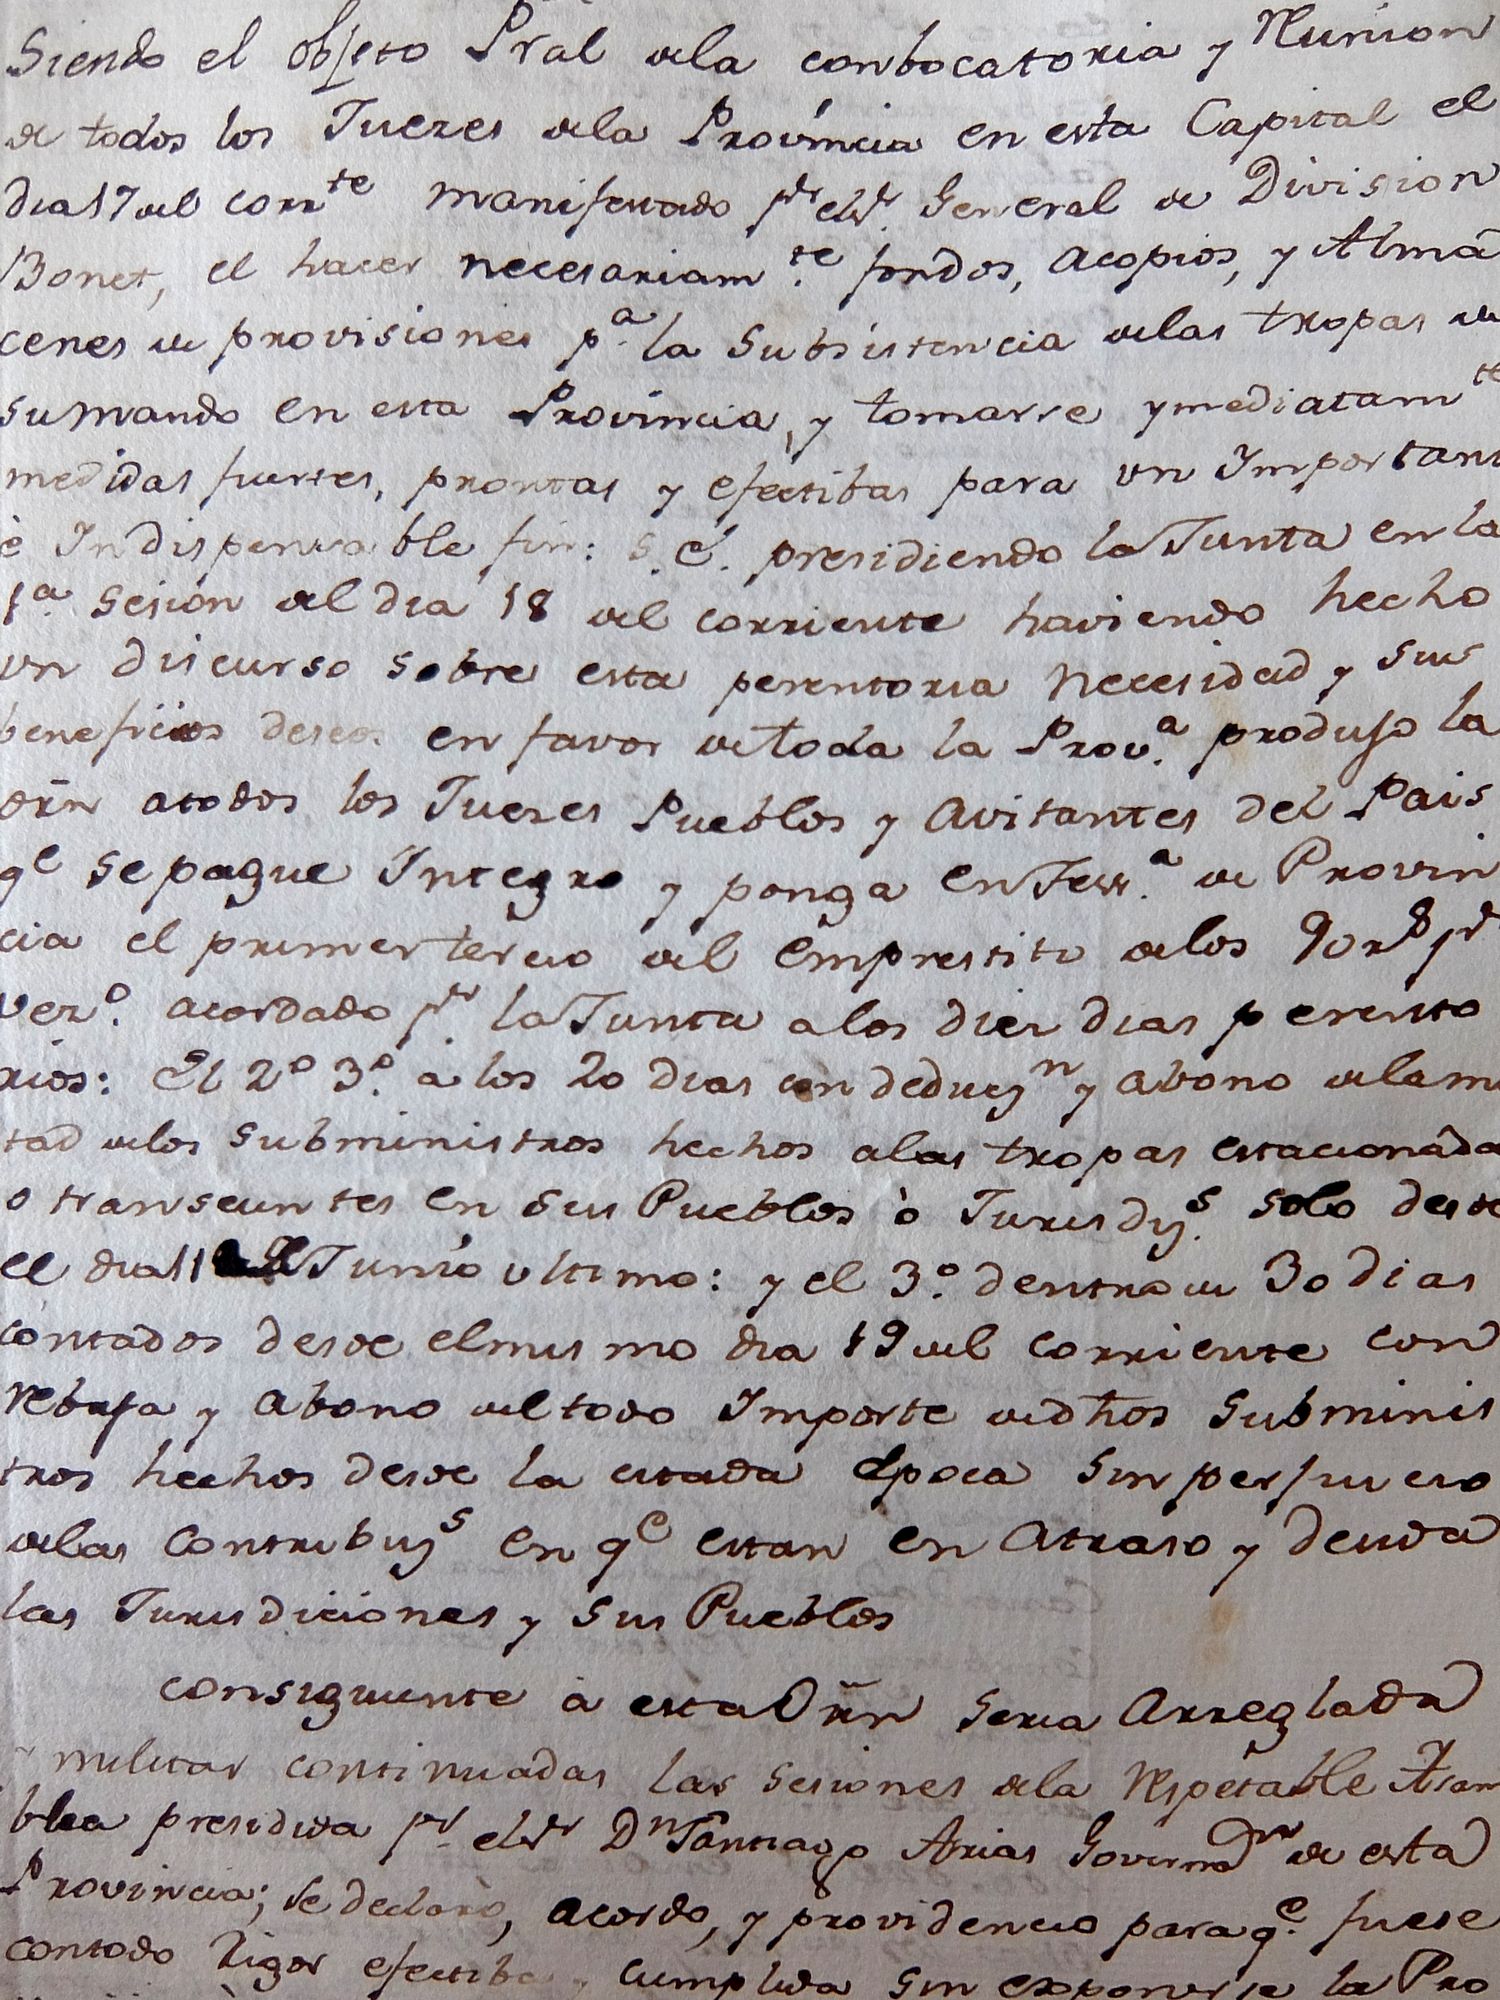 Siendo el objeto Pral dela conbocatoria y Reunion
de todos los Juezes dela Provincia en esta Capital el
dia 17 del corrte manifestado pr el Sr. General de Division
Bonet, el hacer necesariamte fondos, acopios, y Alma
cenes de provisiones pa la Subsistencia delas tropas de
su mando en esta Provincia, y tomarse ymediatamte
medidas fuertes, prontas y efectibas para un Important
è Indispensable fin: S.E. presidiendo la Junta en la
1a sesion del dia 18 del corriente haviendo hecho
un discurso sobre esta perentoria necesidad y sus
beneficios deseos en favor de toda la Prova. produjo la
orn a todos los Juezes Pueblos y avitantes del Pais
qe se pague Integro y ponga en Tessa. de Provin
cia el primer tercio del Emprestito delos 90 rs pr
vezo. acordado pr la Junta a los diez dias perento
rios: El 2o 3o. à los 20 dias con deducn y abono dela mi
tad delos subministros hechos a las tropas estacionada
o transeuntes en sus Pueblos ò Jurisdis. solo desde
el dia 11 Junio ultimo: y el 3o. dentro de 30 dias
contados desde el mismo dia 19 del corriente con
rebaja y abono del todo Importe de dhos Subminis
tros hechos desde la citada Epoca sin perjuicio
delas Contribuys en qe estan en atraso y deuda
las Jurisdiciones y sus Pueblos
consiguiente à esta Orn seria Arreglada
militar continuadas las sesiones dela Respetable Asam
blea presidida pr el Sr Dn Santiago Arias Governador de esta
Provincia; se declarò, acordo, y providencio para qe. fuese
con todo Rigor efectiba y cumplida sin exponerse la Pro